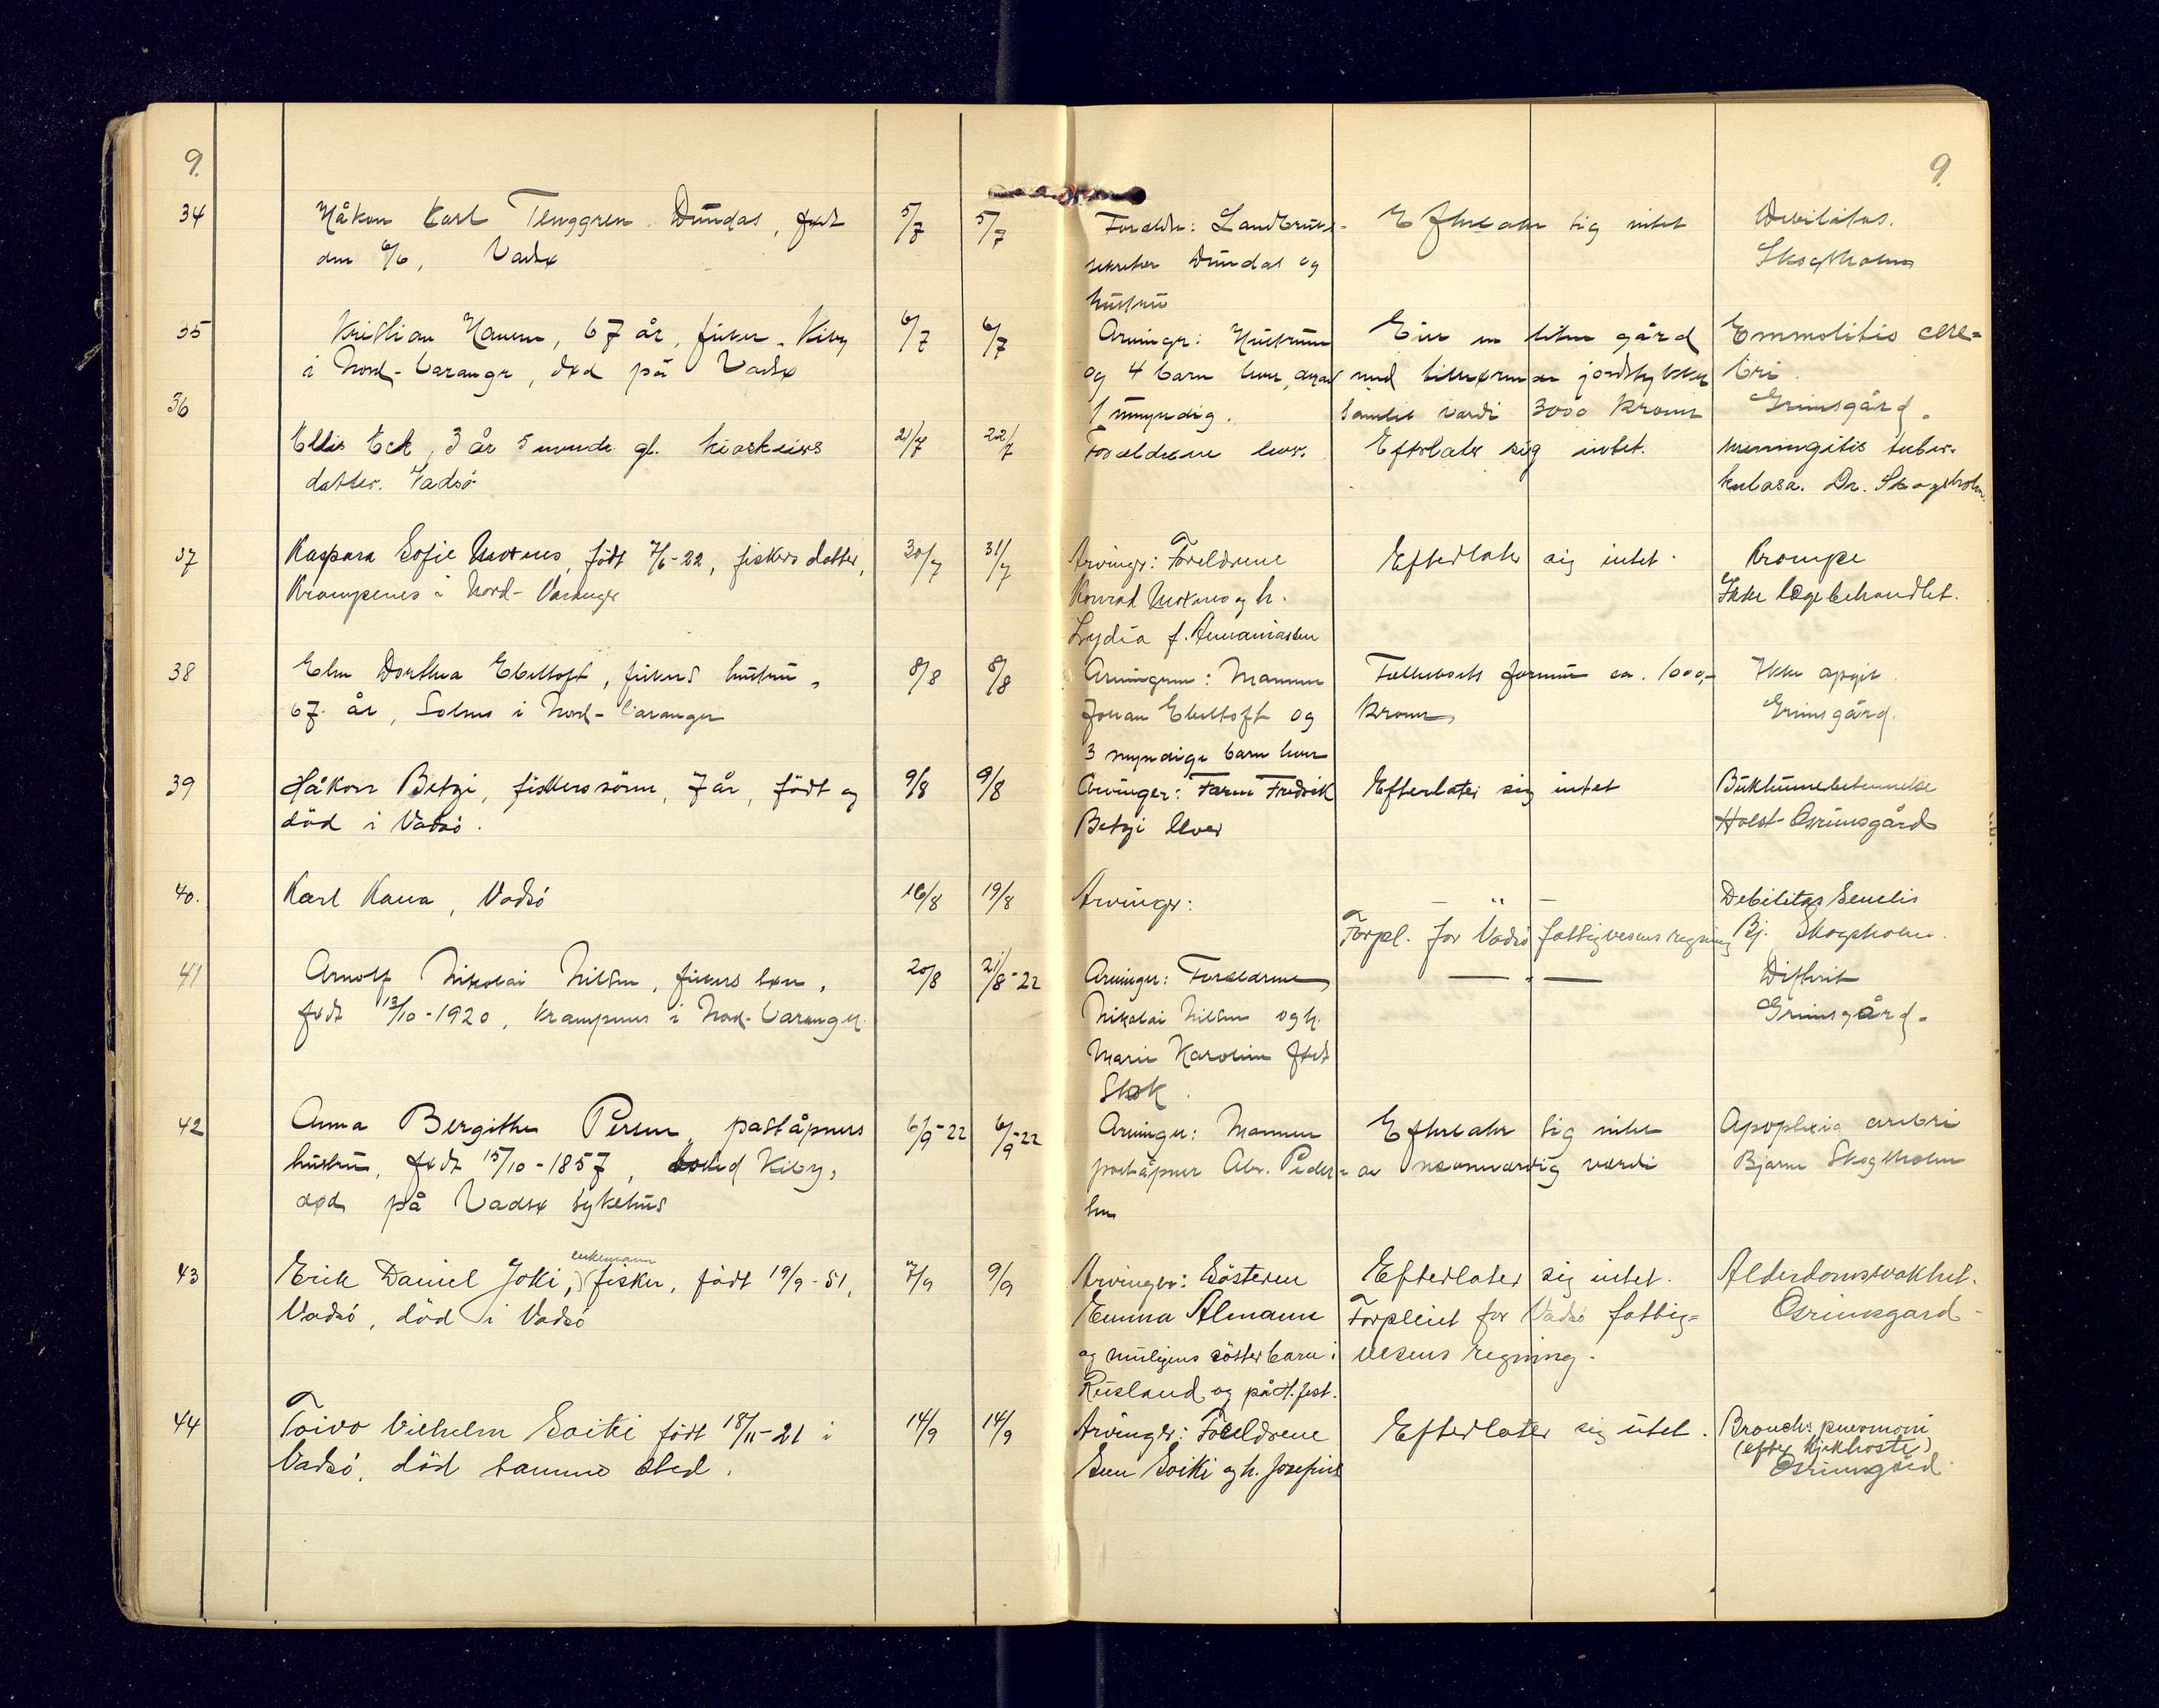 9.
9.
34 Håkon Karl Tenggren Dundas, født 5/7 5/7 Forældre: Landbruks- Efterlater sig intet Debilitas.
den 6/6, Vadsø sekretær Dundas og Skogsholm
hustru
35 Kristian Hansen, 67 år, fisker, Kiby 6/7 6/7 Arvinger: Hustruen Eier en liten gård Emmolitio cere=
i Nord-Varanger, død på Vadsø og 4 barn lever, derav med tilhørende jordstykker bri.
36 1 umyndig. samlet værdi 3000 kroner Grimsgård.
Ellis Eck, 3 år 5 månde gl. kioskeiers 21/7 22/7 Forældrene lever. Efterlater sig intet. meningitis tuber-
datter. Vadsö kulosa. Dr. Skogsholm.
37 Kaspara Sofie, født 7/6-22, fiskers datter, 30/7 31/7 Arvinger: Foreldrene Efterlater sig intet. Krampe
Krampenes i Nord-Varanger Konrad og h. Ikke lægebehandlet.
Lydia f.
38 Elen Dorthea Ebeltoft, fiskers hustru, 8/8 8/8 Arvingene: Mannen Fællesboets formue ca. 1000,- Ikke opgit.
67 år, Solnes i Nord-Varanger Johan Ebeltoft og kroner, Grimsgård.
3 myndige barn lever
39 Håkon Betzi, fiskerssönn, 7 år, födt og 9/8 9/8 Arvinger: Faren Fredrik Efterlater sig intet Bukhinnebetennelse
död i Vadsö. Betzi lever Holst-Grimsgård
40. Karl Kana, Vadsö 16/8 19/8 Arvinger: — " — Debilitas senelis
Forpl. for Vadsö fattigvesens regning Bj. Skogsholm.
41 Arnolf Nikolai Nilsen, fiskers søn, 20/8 21/8-22 Arvinger: Forældrene — " — Difterit
født 13/10-1920, Krampenes i Nord-Varanger. Nikolai Nilsen og h. Grimsgård.
Marie Karoline født
Skok.
42 Anna Bergithe Persen, poståpners 6/9-22 6/9-22 Arvinger: Mannen Efterlater sig intet Apoplexia cerebri
hustru, født 15/10-1857, Kiby, poståpner Abr. Peder= av nevneværdig værdi Bjarne Skogsholm
død på Vadsø sykehus sen
43 Erik Daniel Joki, enkemann fisker, födt 19/9-51, 7/9 9/9 Arvinger: Sösteren Efterlater sig intet. Alderdomssvakhet.
Vadsö, död i Vadsö Emma Almann Forpleiet for Vadsö fattig= Grimsgard
og muligens sösterbarn i vesens regning.
Rusland og på
44 Toivo Vilhelm Soiki födt 18/11-21 i 14/9 14/9 Arvinger: Foreldrene Efterlater sig intet. Bronch: pneomoni
Vadsö, död samme sted. Soiki og h. Josefine (efter kikhoste)
Grimsgård.